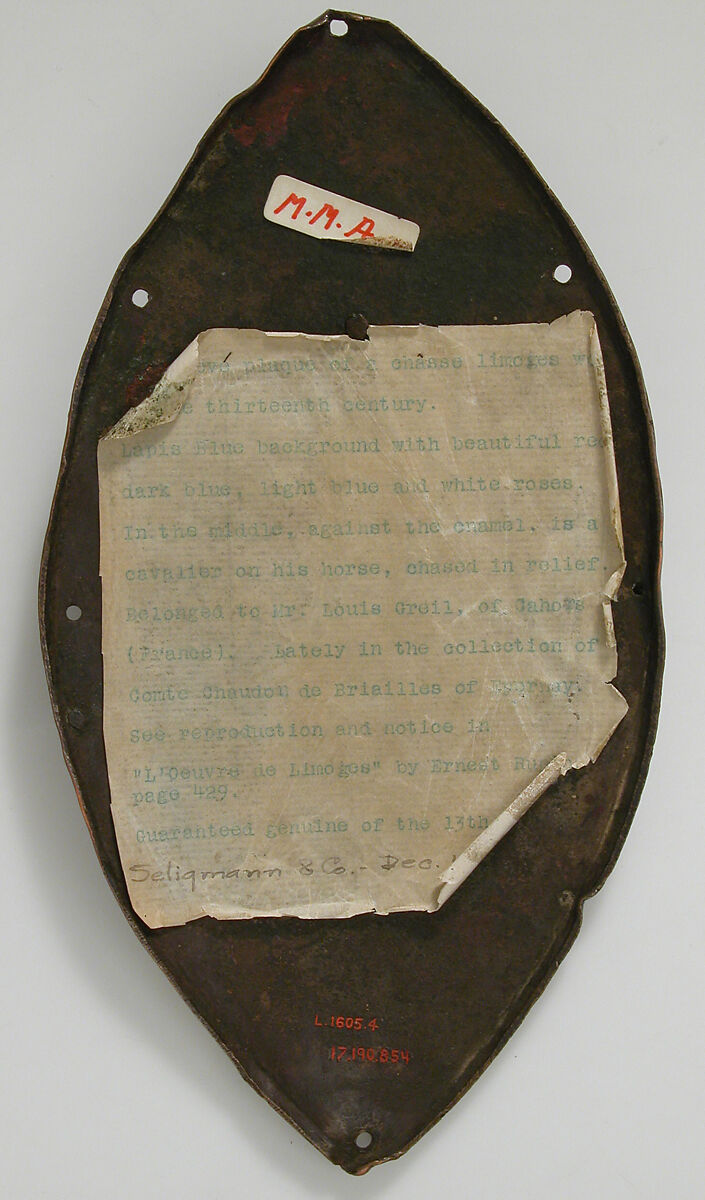 M.M.A
plaque of a chasse limoges
thirteenth century.
Lapis Blue background with beautiful
dark blue, light blue and white roses.
In the middle, against the enamel, is a
cavalier on his horse, chased in relief.
Belonged to Mr. Louis Greil, of Cahors
(France). Lately in the collection of
Comte Chaudon de Briailles of Epernay.
See reproduction and notice in
"L'Oeuvre de Limoges" by Ernest
page 429.
Guaranteed genuine of the 13th
Seligmann & Co. - Dec.
L.1605.4
17.190.854